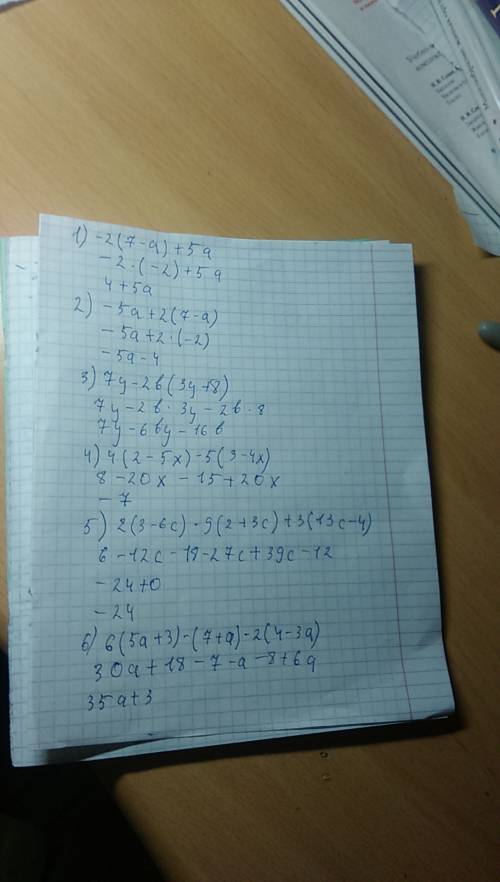 1) -2(7-a)+5a
-2·(-2)+5a
4+5a
2) -5a+2(7-a)
-5a+2·(-2)
-5a-4
3) 7y-2в(3y+8)
7y-2в·3y-2в·8
7y-6вy-16в
4) 4(2-5x)-5(3-4x)
8-20x-15+20x
-7
5) 2(3-6c)-9(2+3c)+3(13c-4)
6-12c-18-27c+39c-12
-24+0
-24
6) 6(5a+3)-(7+a)-2(4-3a)
30a+18-7-a-8+6a
35a+3